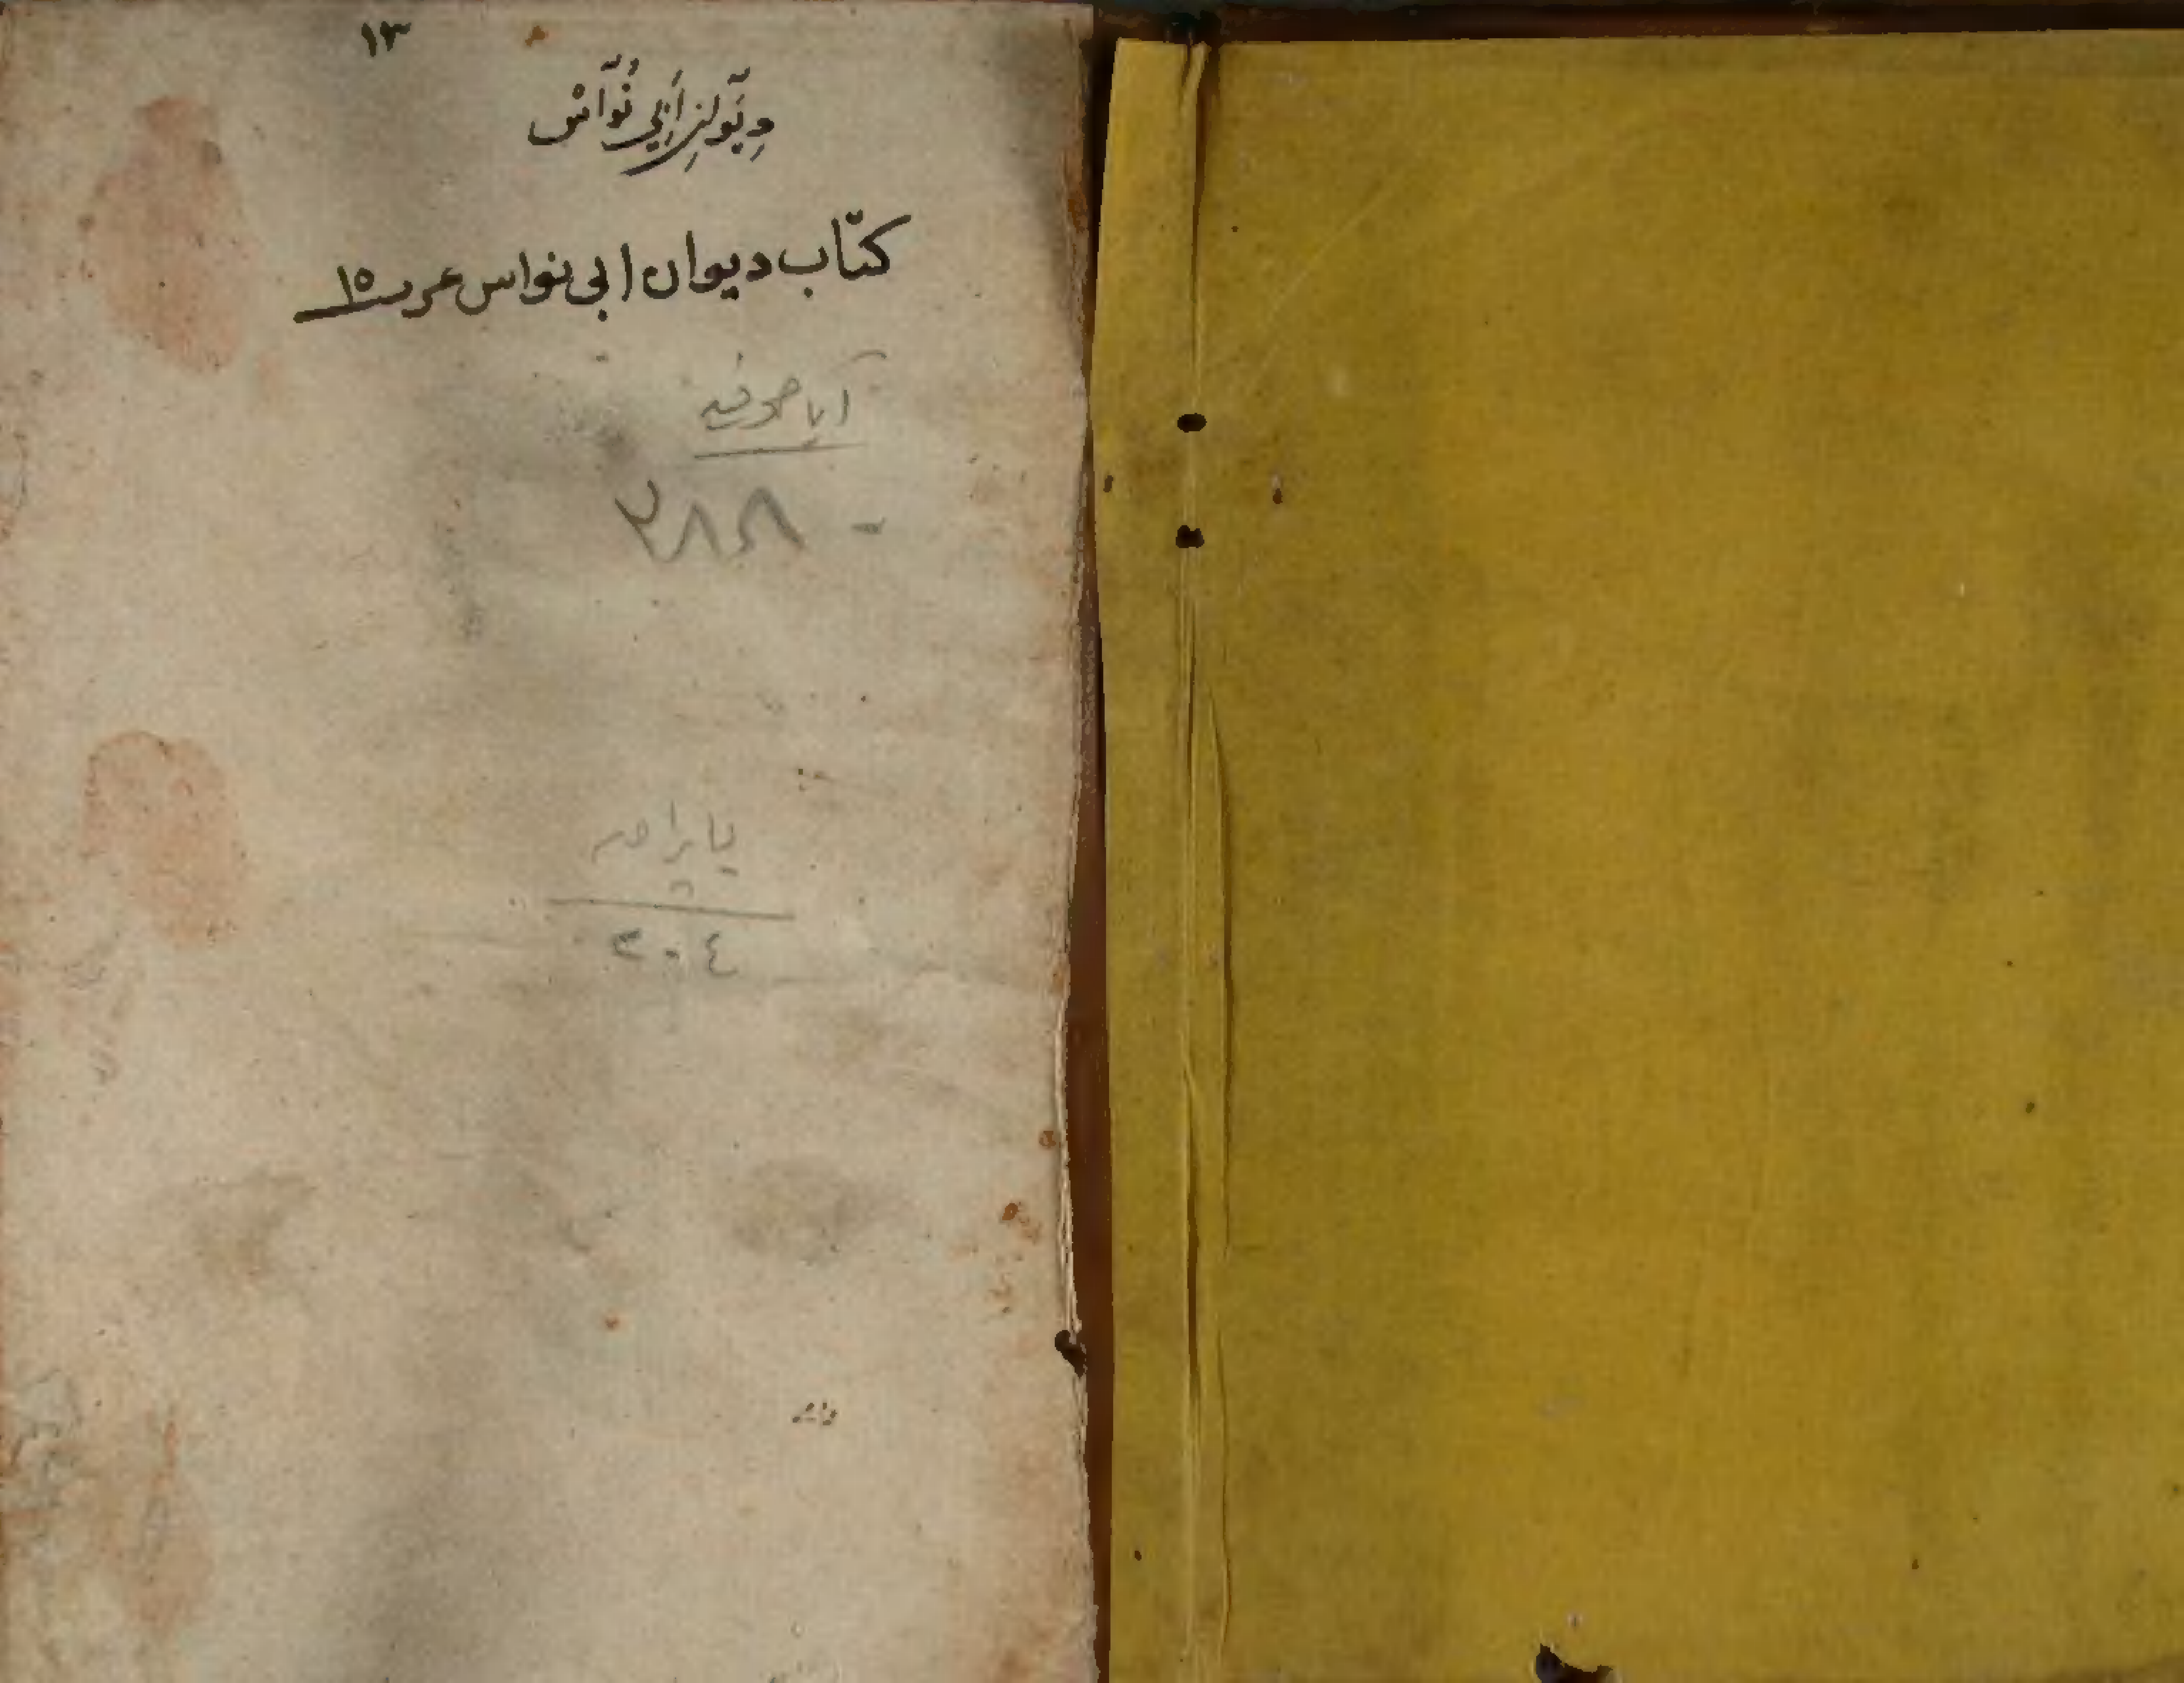 ١٣
دِيَوانِ أَبِي نُوَاسْ
كتاب ديوان ابى نواس عرب ١٥
آيا صوفيه
٣٨٨٠
يا پراق
٢٠٤